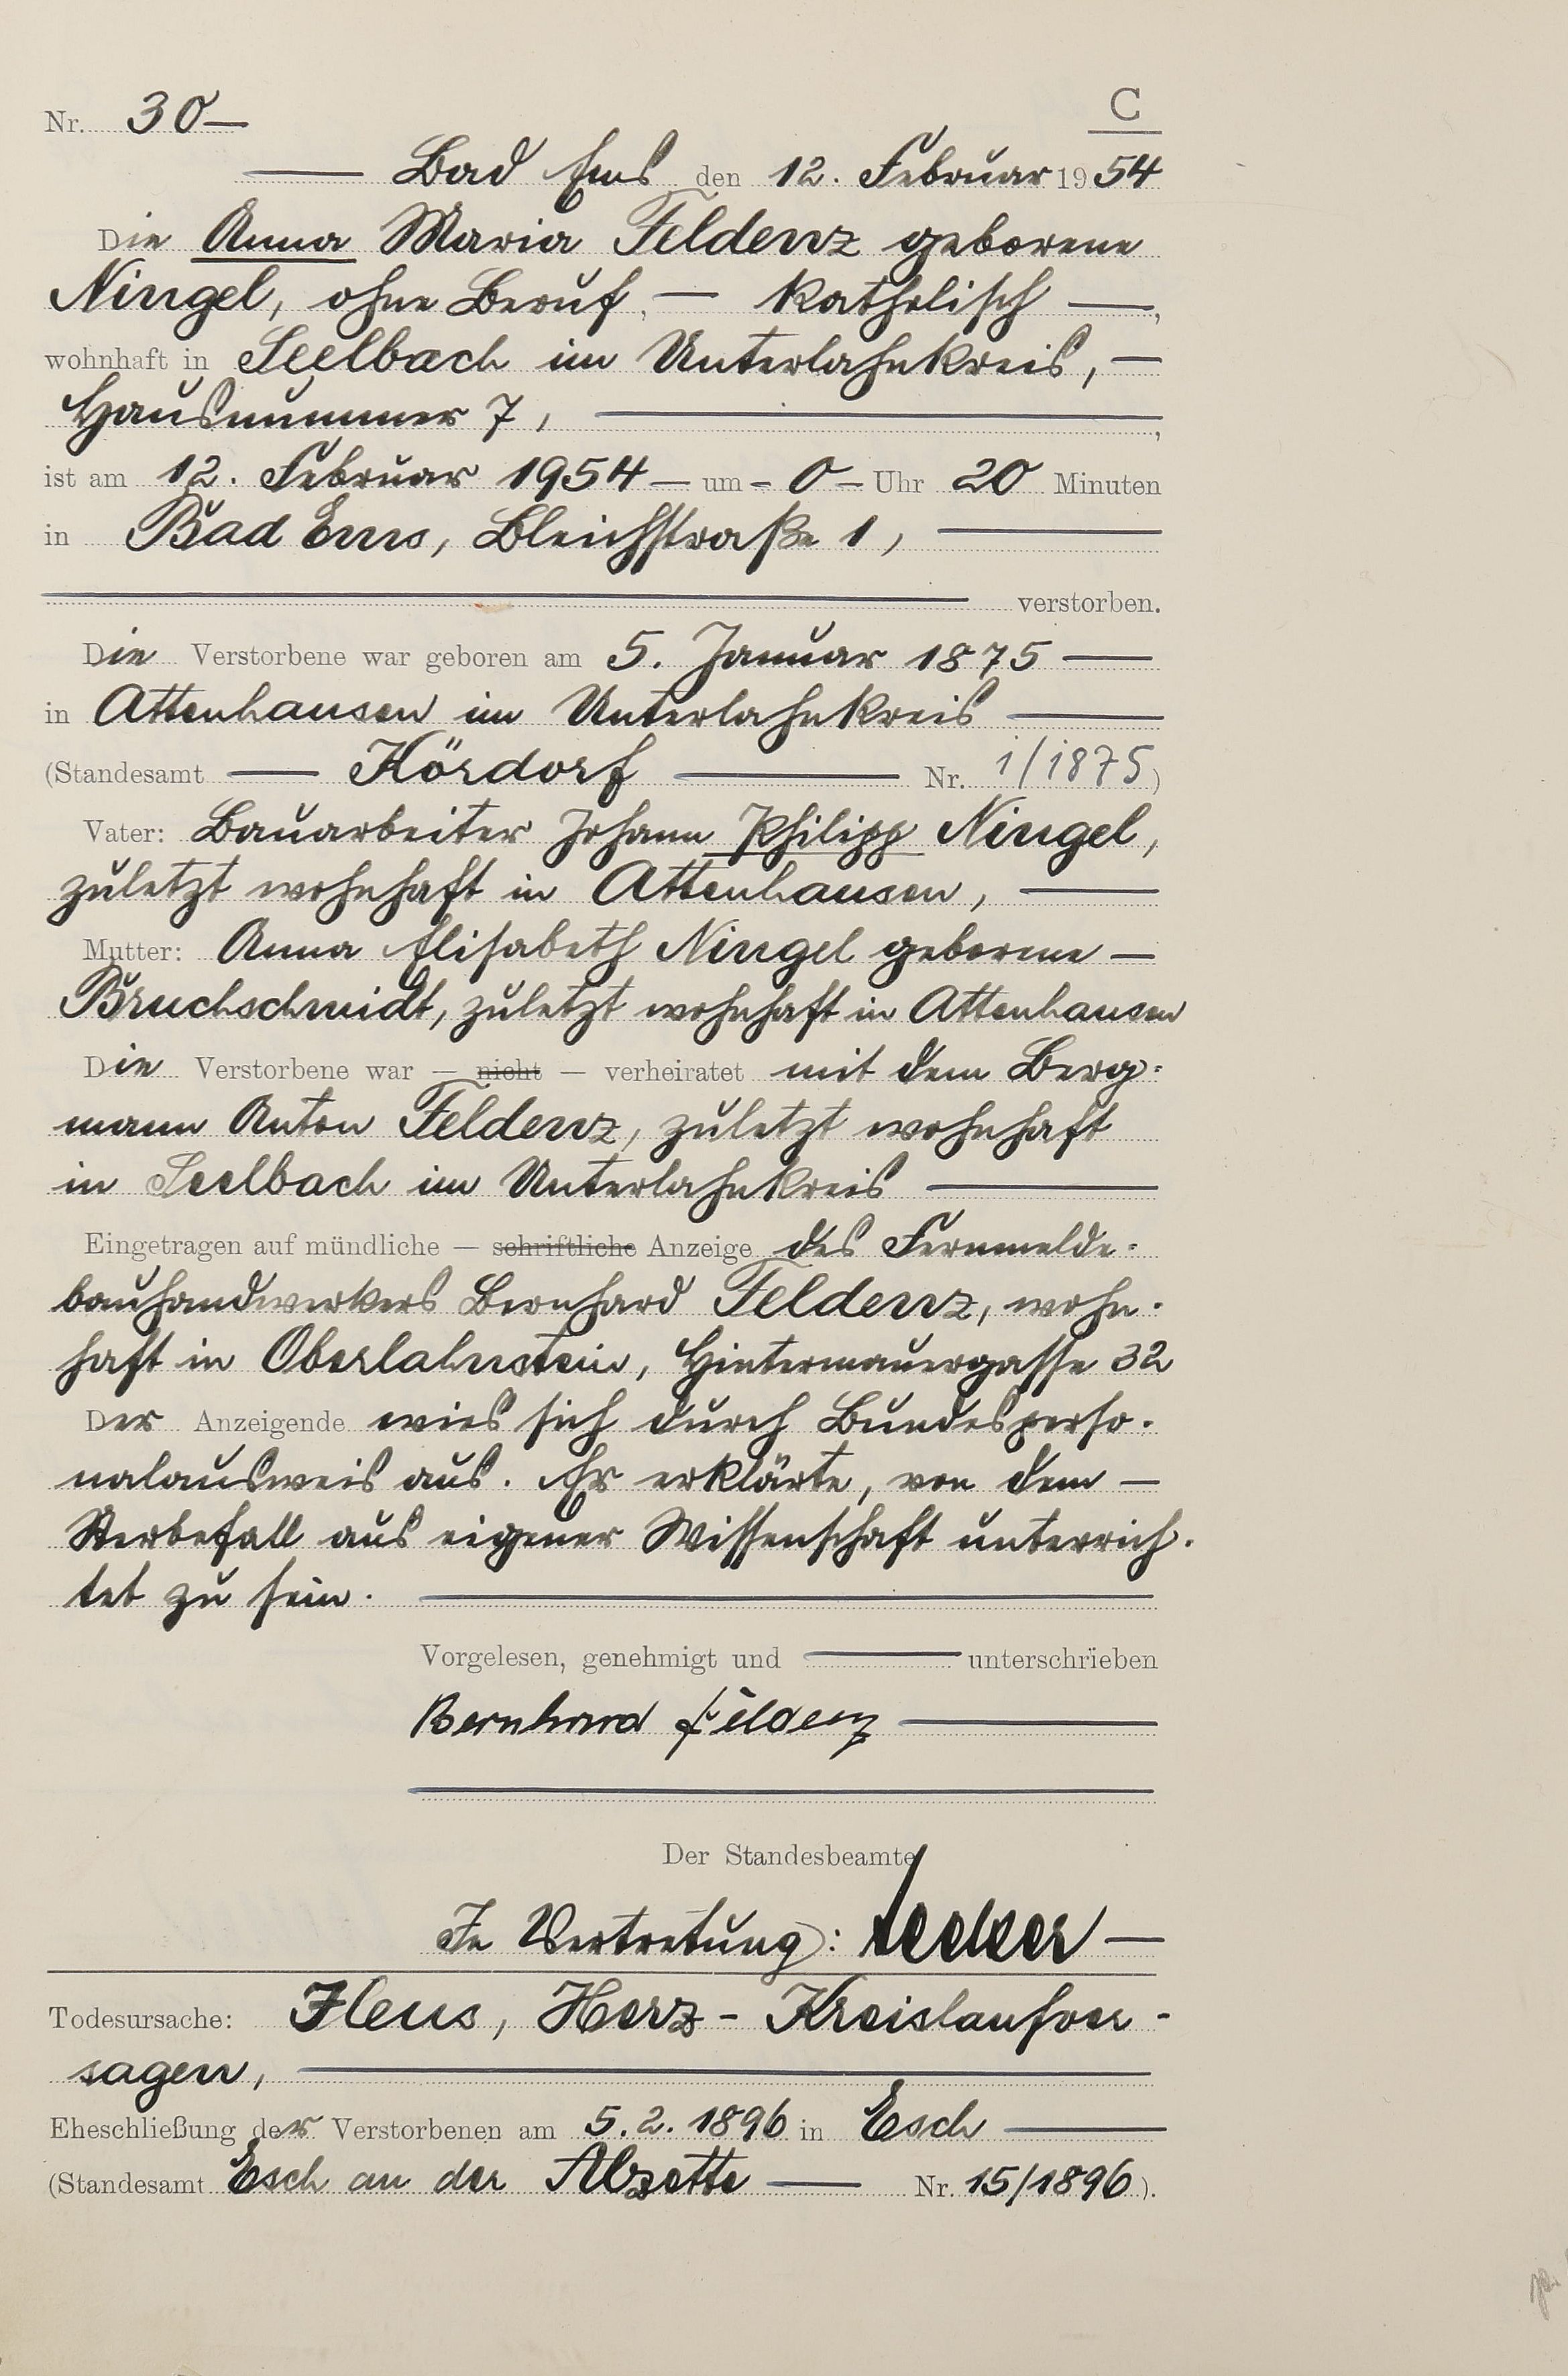 C
Nr. 30 —
— Bad Ems, den 12. Februar 1954
Die Anna Maria Feldenz geborene
Ningel, ohne Beruf, — katholisch —,
wohnhaft in Seelbach im Unterlahnkreis, —
Hausnummer 7, —,
ist am 12. Februar 1954 — um - 0 - Uhr 20 Minuten
in Bad Ems, Bleichstraße 1, —
— verstorben.
Die Verstorbene war geboren am 5. Januar 1875 —
in Attenhausen im Unterlahnkreis —
(Standesamt — Kördorf — Nr. 1/1875)
Vater: Bauarbeiter Johann Philipp Ningel,
zuletzt wohnhaft in Attenhausen, —
Mutter: Anna Elisabeth Ningel geborene —
Bruchschmidt, zuletzt wohnhaft in Attenhausen
Die Verstorbene war — nicht — verheiratet mit dem Berg-
mann Anton Feldenz, zuletzt wohnhaft
in Seelbach im Unterlahnkreis —
Eingetragen auf mündliche — schriftliche Anzeige des Fernmelde-
bauhandwerkers Bernhard Feldenz, wohn-
haft in Oberlahnstein, Hintermauergasse 32
Der Anzeigende wies sich durch Bundesperso-
nalausweis aus. Er erklärte, von dem —
Sterbefall aus eigener Wissenschaft unterrich-
tet zu sein. —
Vorgelesen, genehmigt und — unterschrieben
Bernhard Feldenz —
Der Standesbeamte
In Vertretung: —
Todesursache: Ileus, Herz- Kreislaufver-
sagen, —
Eheschließung der Verstorbenen am 5.2.1896 in Esch —
(Standesamt Esch an der Alzette — Nr. 15/1896).